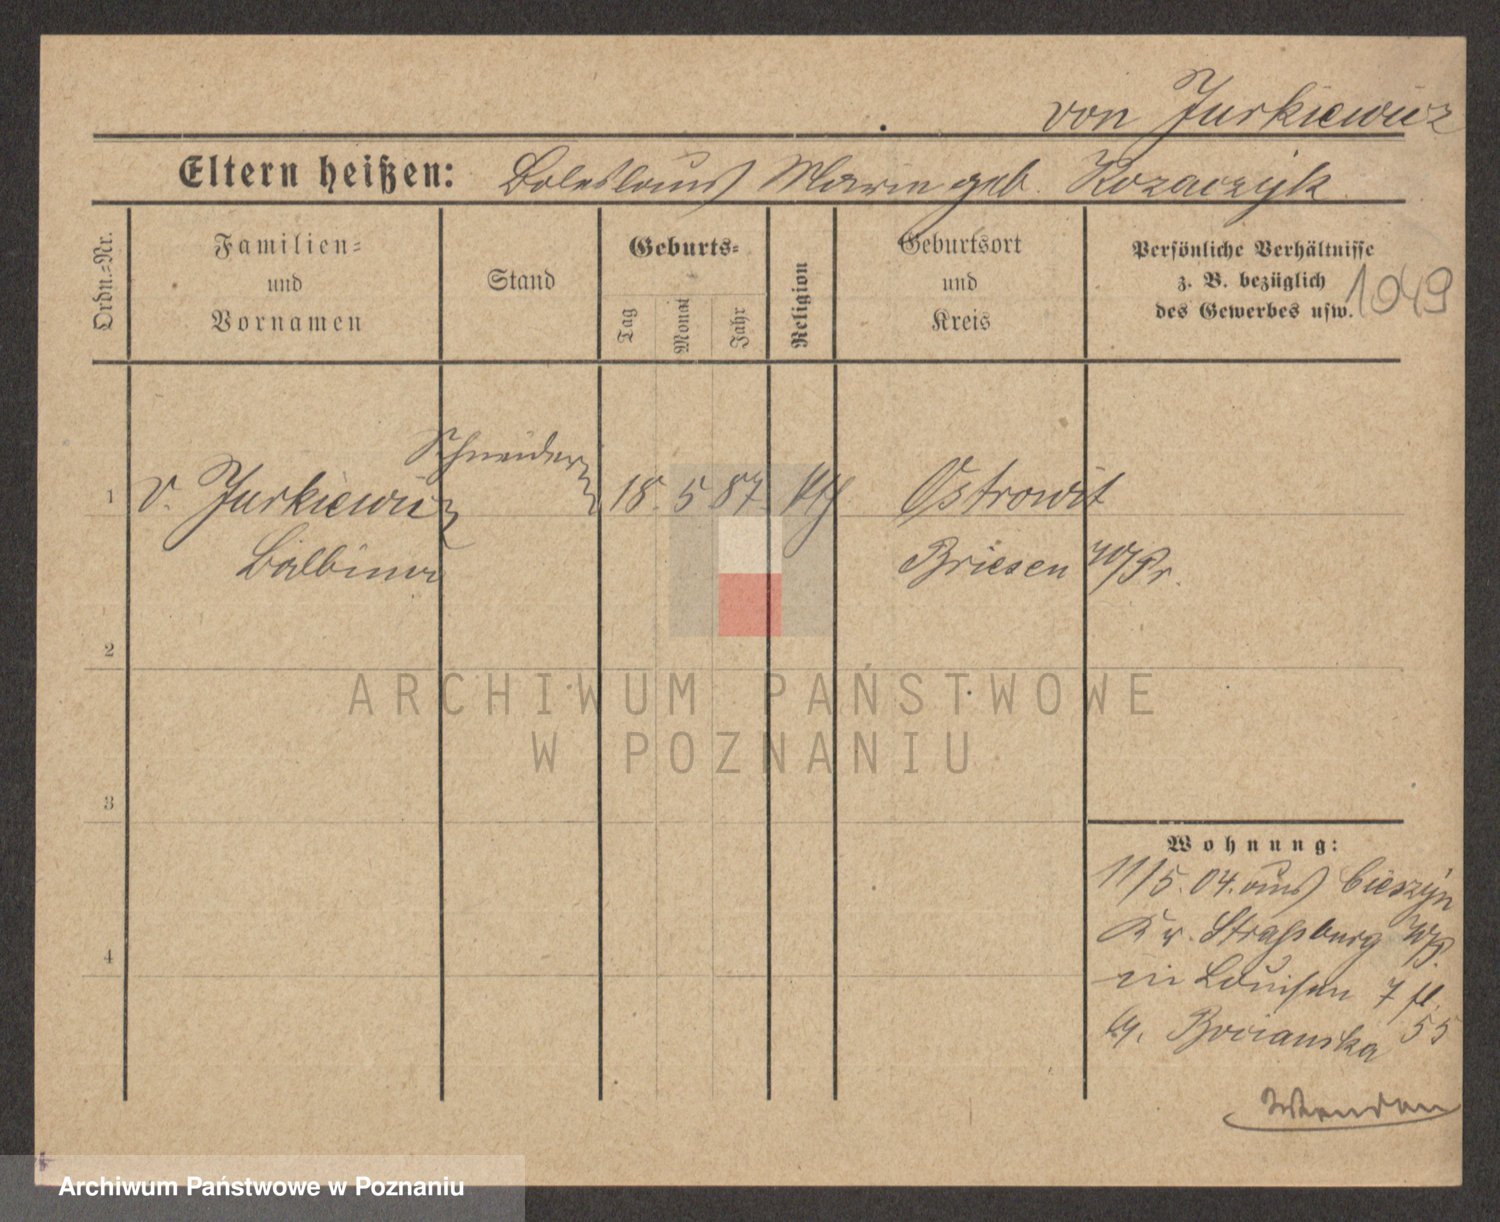 von Jurkiewicz
Eltern heißen: Boleslaus Marie geb. Kozaczyk
Ordn.-Nr.
Familien-
und
Vornamen
Stand
Geburts-
Tag
Monat
Jahr
Religion
Geburtsort
und
Kreis
Persönliche Verhältnisse
z. B. bezüglich
des Gewerbes usw.
1049
Schneiderin
1 v. Jurkiewicz 18. 5 87. kth Ostrowit
Balbina Briesen W/Pr.
2
3
4
ARCHIWUM PAŃSTWOWE
W POZNANIU
Wohnung:
11/5. 04. aus Cieszyn
Kr. Straßburg W/P.
in Louisen 7 fl.
Bocianska 55
Archiwum Państwowe w Poznaniu